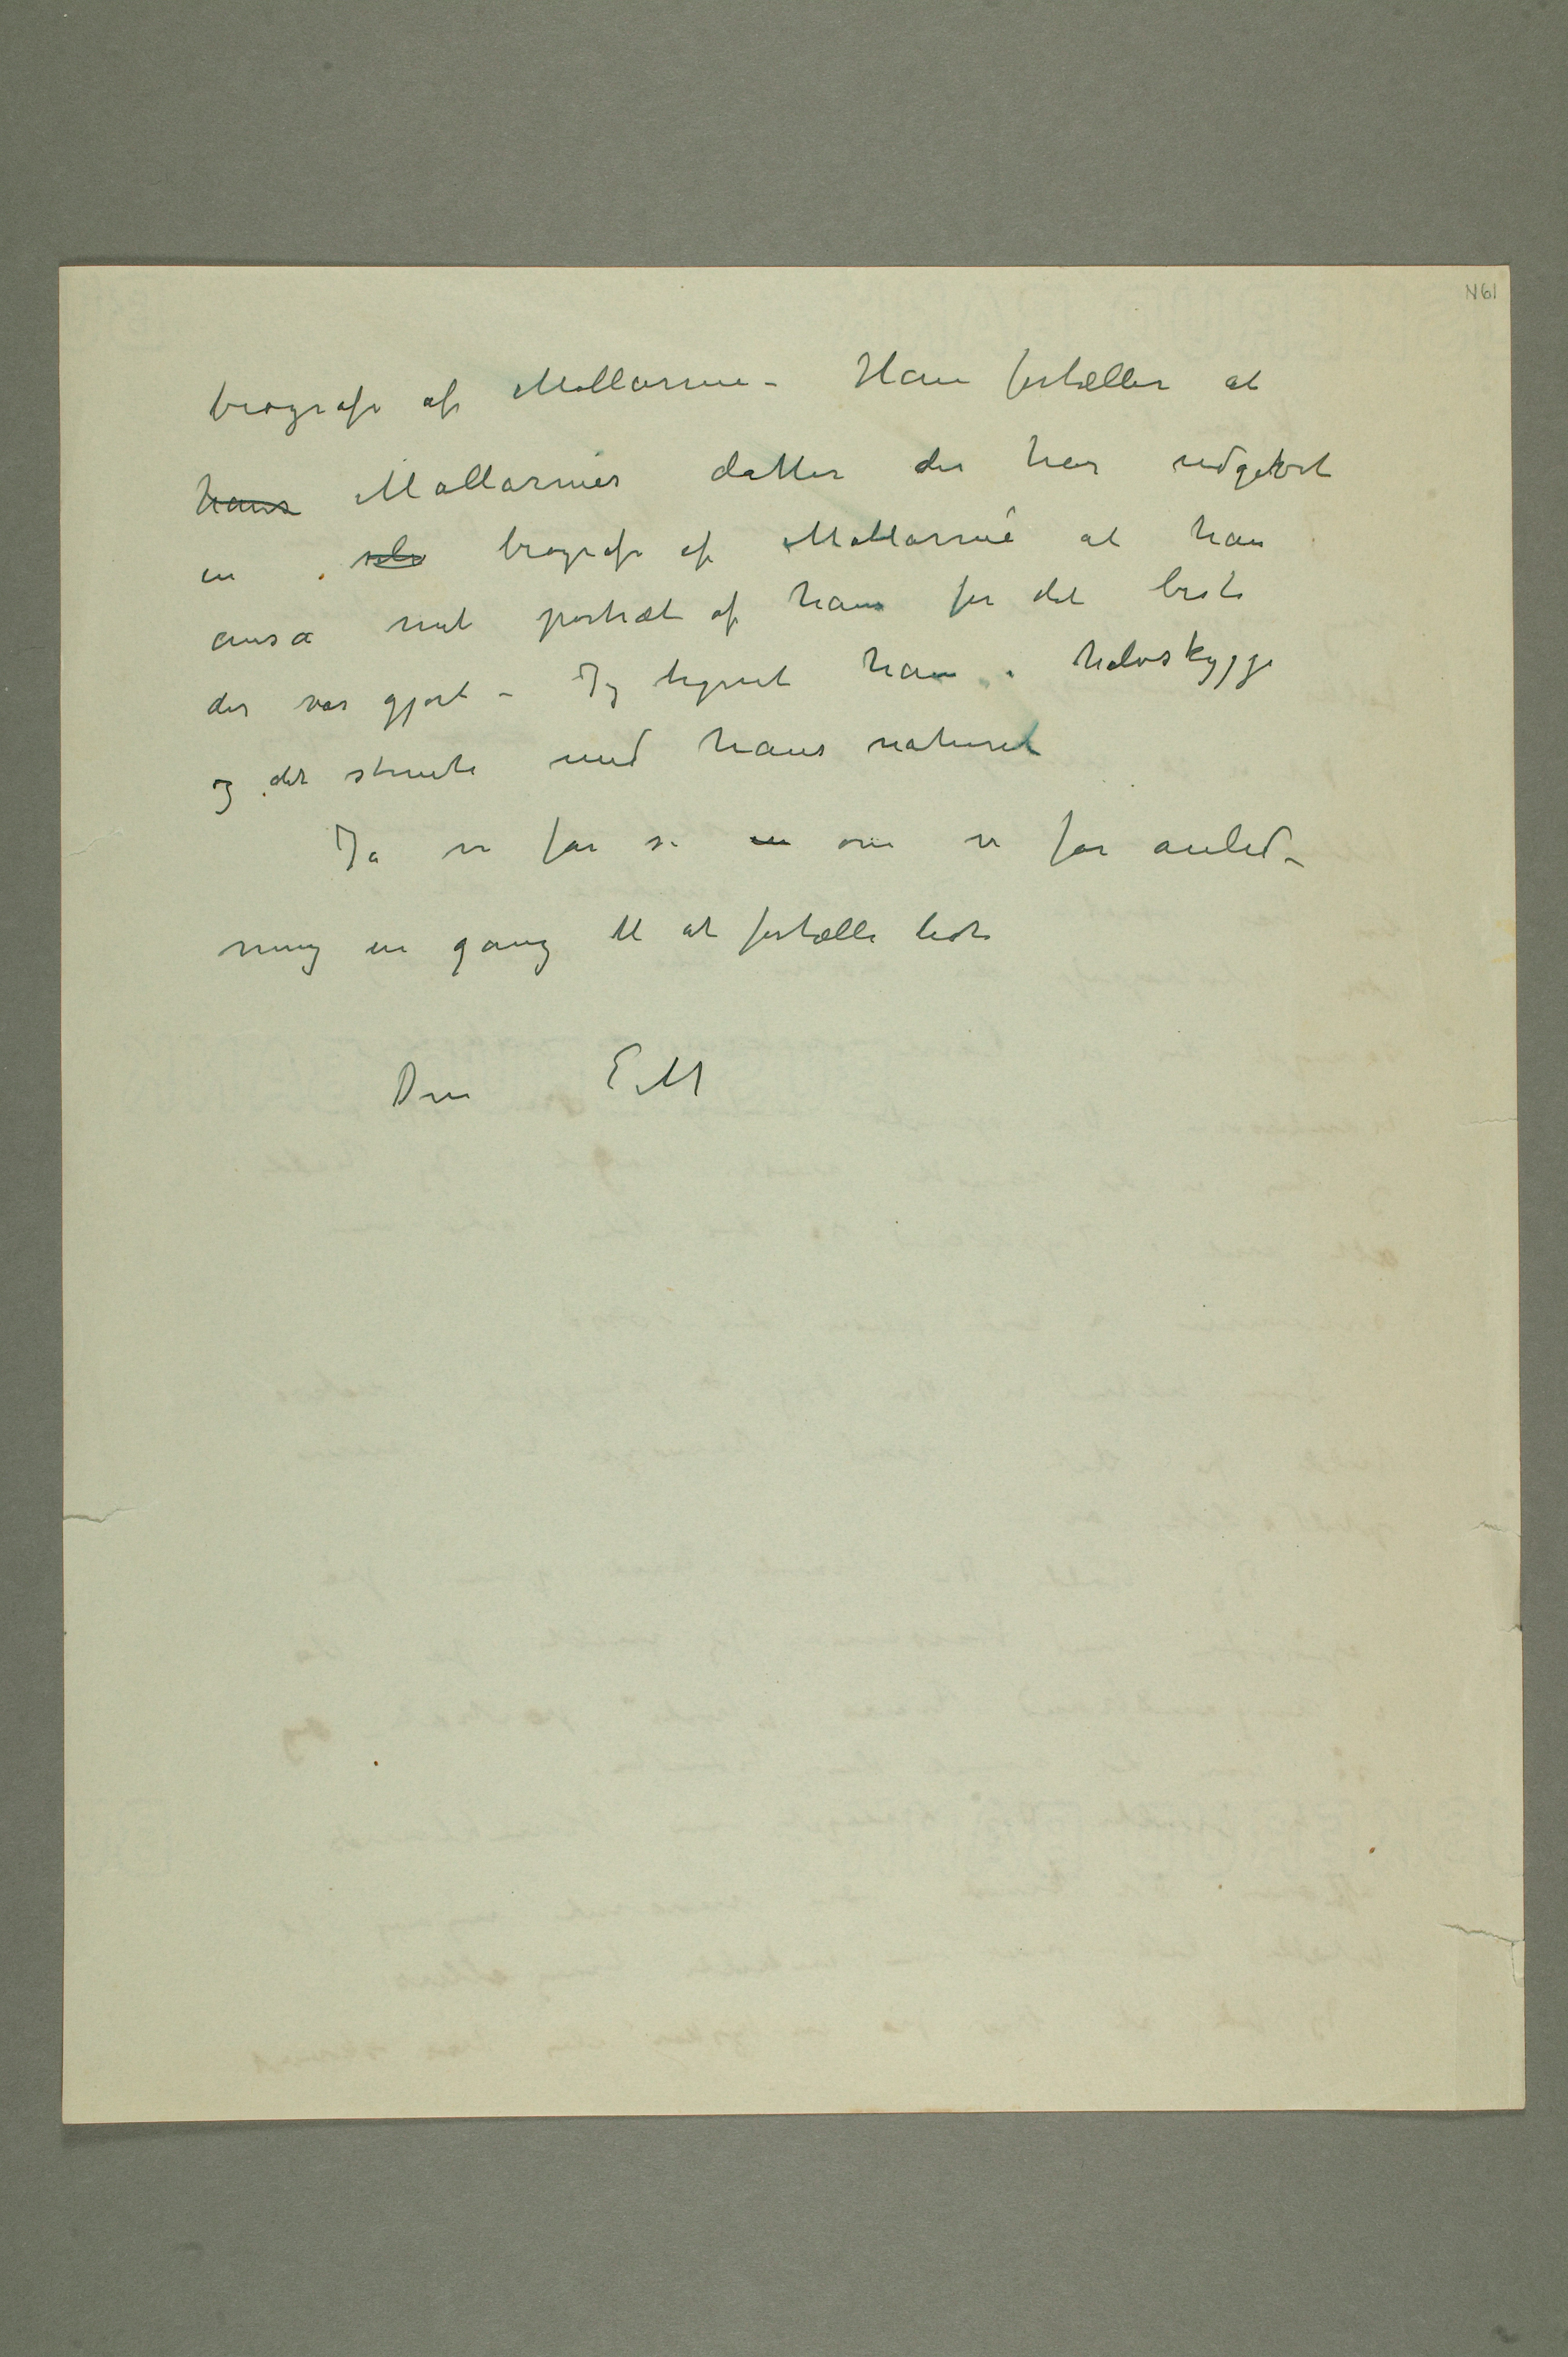 N61
biografi af Mallarmé – Han fortæller at
hans Mallarmés datter der har udgivet
en selv biografi af Mallarmé at han
anså mit portræt af ham for det beste
der var gjort – Jeg tegnet ham i halvskygge
og det stemte med hans naturel
Ja vi får se en om vi får anled–
ning en gang til at fortælle lidt
Din E.M